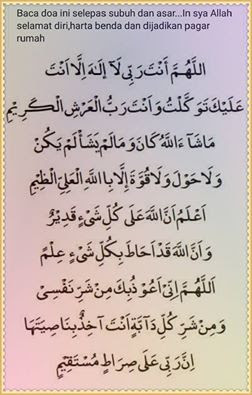 Baca doa ini selepas subuh dan asar...In sya Allah
selamat diri,harta benda dan dijadikan pagar
rumah
اَللَّهُمَّ أَنْتَ رَبِّيْ لَآ إِلَهَ إِلَّا أَنْتَ
عَلَيْكَ تَوَكَّلْتُ وَأَنْتَ رَبُّ الْعَرْشِ الْكَرِيْمِ
مَاشَآءَ اللَّهُ كَانَ وَمَالَمْ يَشَأْ لَمْ يَكُنْ
وَلَا حَوْلَ وَلَا قُوَّةَ إِلَّا بِاللَّهِ الْعَلِيِّ الْعَظِيْمِ
أَعْلَمُ أَنَّ اللَّهَ عَلَى كُلِّ شَيْءٍ قَدِيْرٌ
وَأَنَّ اللَّهَ قَدْ أَحَاطَ بِكُلِّ شَيْءٍ عِلْمًا
اَللَّهُمَّ إِنِّيْ أَعُوْذُ بِكَ مِنْ شَرِّ نَفْسِيْ
وَمِنْ شَرِّ كُلِّ دَآبَّةٍ أَنْتَ آخِذٌ بِنَاصِيَتِهَا
إِنَّ رَبِّيْ عَلَى صِرَاطٍ مُسْتَقِيْمٍ